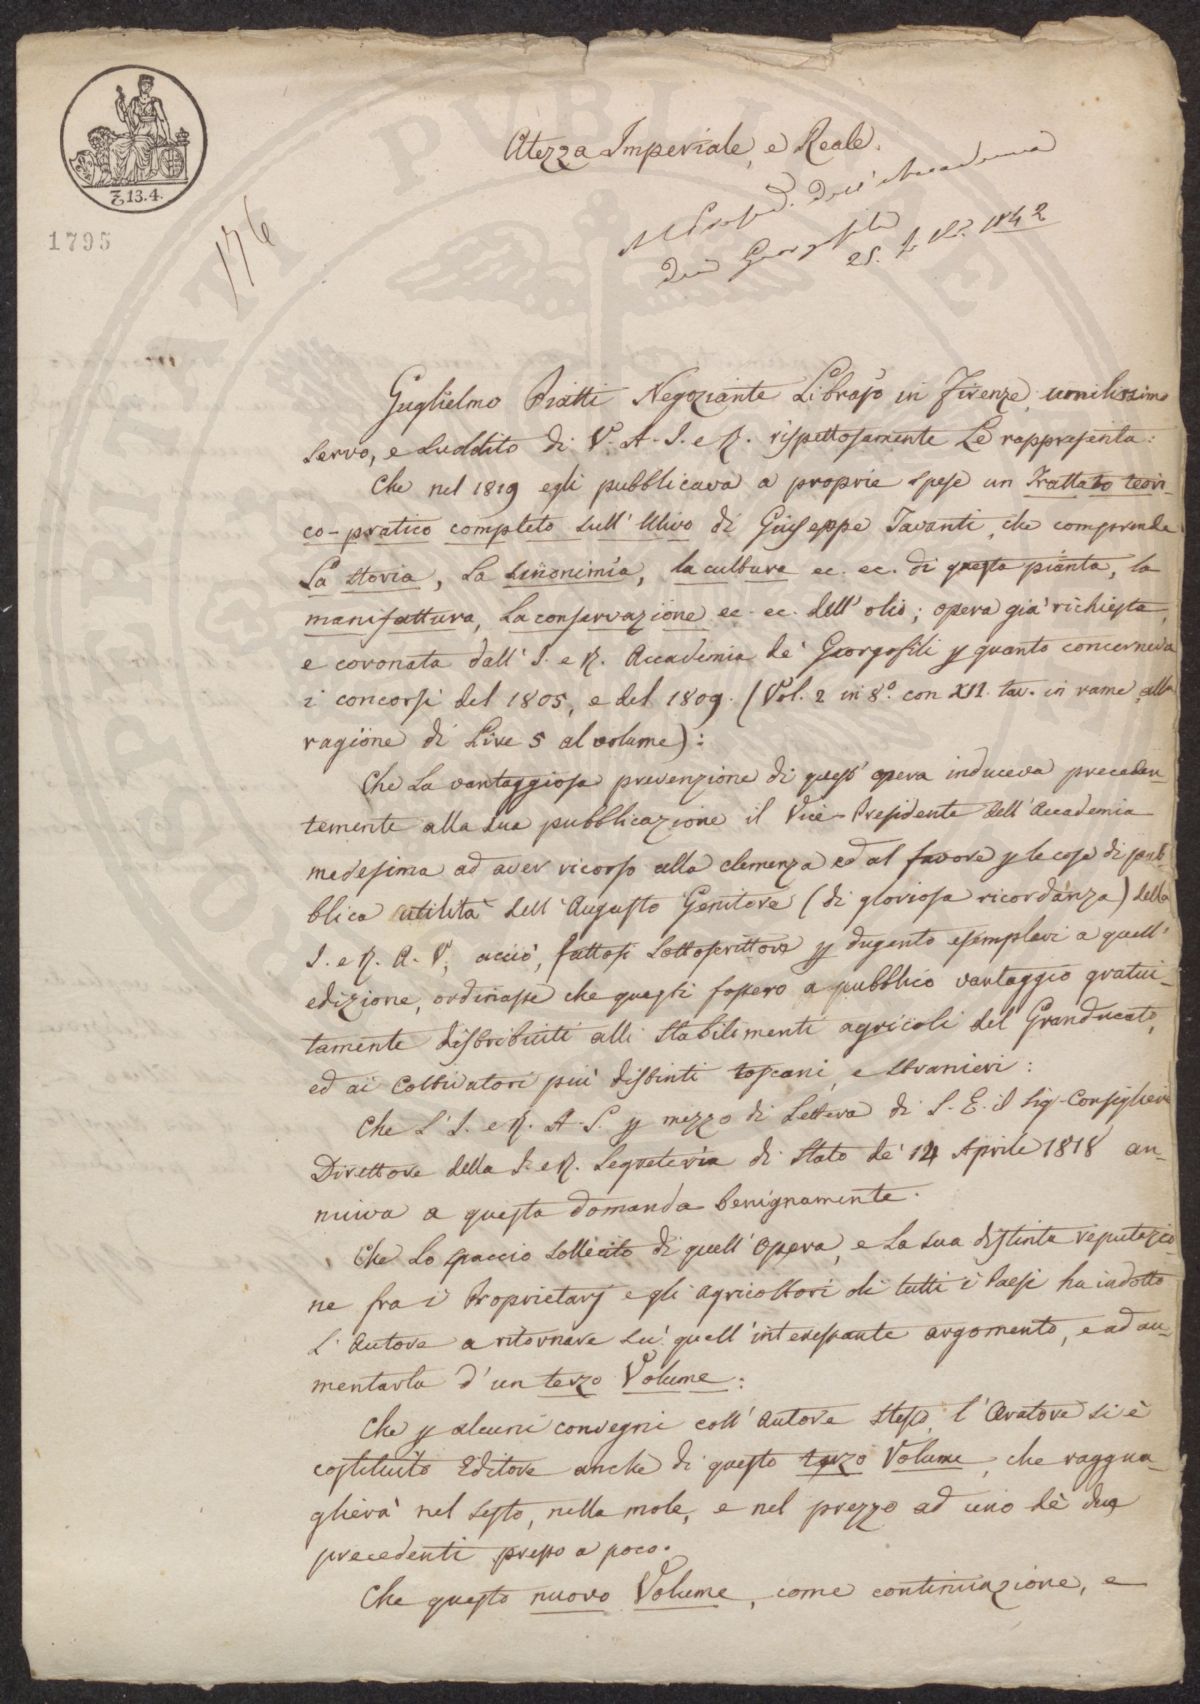 ₤ 13.4.
1795
176
Altezza Imperiale, e Reale.
Al Presid. dell' Accademia
dei Georgofili
25. 1842
Guglielmo Piatti Negoziante Librajo in Firenze, umilissimo
servo, e suddito di V. A. I. e R. rispettosamente Le rappresenta:
Che nel 1819 egli pubblicava a proprie spese un Trattato teori-
co-pratico completo sull' Ulivo di Giuseppe Tavanti, che comprende
La storia, La sinonimia, la cultura ec. ec. di questa pianta, la
manifattura, La conservazione ec. ec. dell' olio; opera già richiesta,
e coronata dall' I. e R. Accademia de' Georgofili p quanto concerneva
i concorsi del 1805, e del 1809. (Vol. 2 in 8.º con XII. tav. in rame, alla
ragione di Lire 5 al volume):
Che La vantaggiosa prevenzione di quest' opera induceva preceden-
temente alla sua pubblicazione il Vice-Presidente dell' Accademia
medesima ad aver ricorso alla clemenza ed al favore p le cose di pub-
blica utilità dell' Augusto Genitore (di gloriosa ricordanza) della
I. e R. A. V., acciò, fattosi Sottoscrittore p dugento esemplari a quell'
edizione, ordinasse che questi fossero a pubblico vantaggio gratui-
tamente distribuiti alli stabilimenti agricoli del Granducato,
ed ai Coltivatori più distinti toscani, e stranieri:
Che L' I. e R. A. S. p mezzo di Lettera di S. E. il Sig. Consigliere
Direttore della I. e R. Segreteria di Stato de' 14 Aprile 1818 an-
nuiva a questa domanda benignamente.
Che Lo spaccio sollecito di quell' Opera, e La sua distinta reputazio-
ne fra i Proprietarj e gli Agricoltori di tutti i Paesi ha indotto
L' Autore a ritornare su' quell' interessante argomento, e ad au-
mentarla d' un terzo Volume:
Che p alcuni convegni coll' Autore stesso, l' Oratore si è
costituito Editore anche di questo terzo Volume, che ragguа-
glierà nel sesto, nella mole, e nel prezzo ad uno de' due
precedenti presso a poco.
Che questo nuovo Volume, come continuazione, e